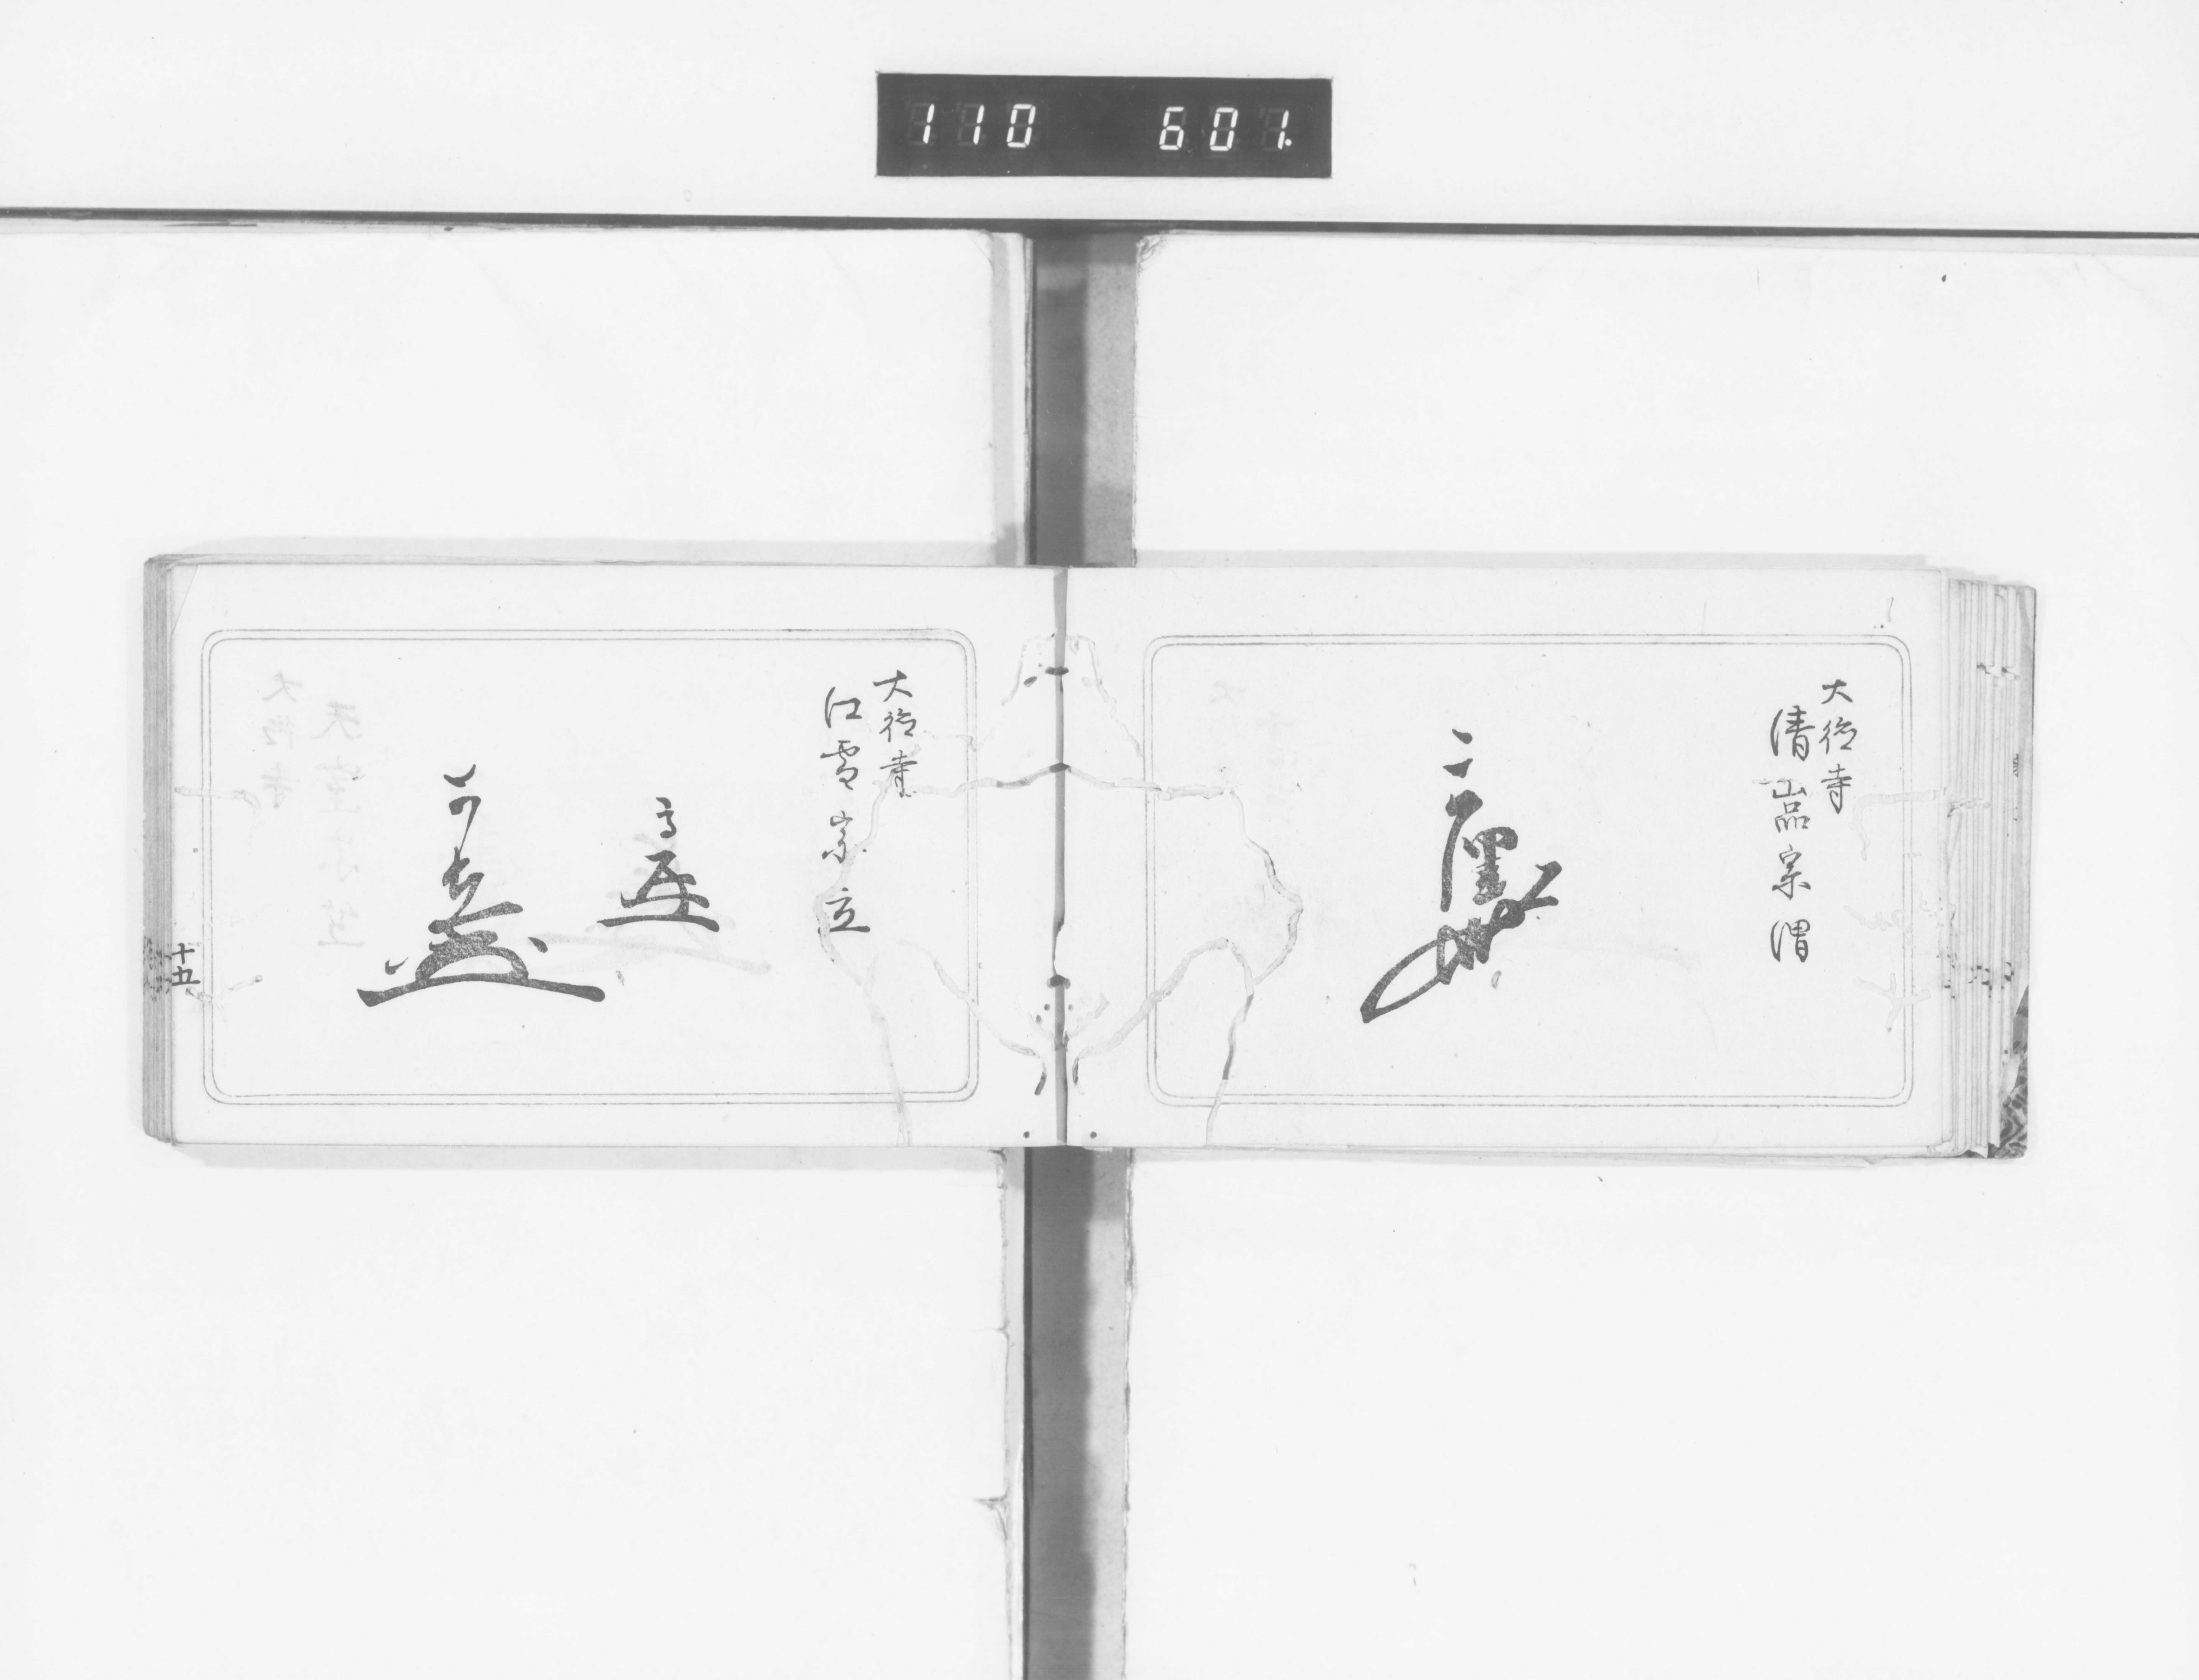 110 601.
大徳寺
清嵒宗渭
大徳寺
江雪宗立
十五